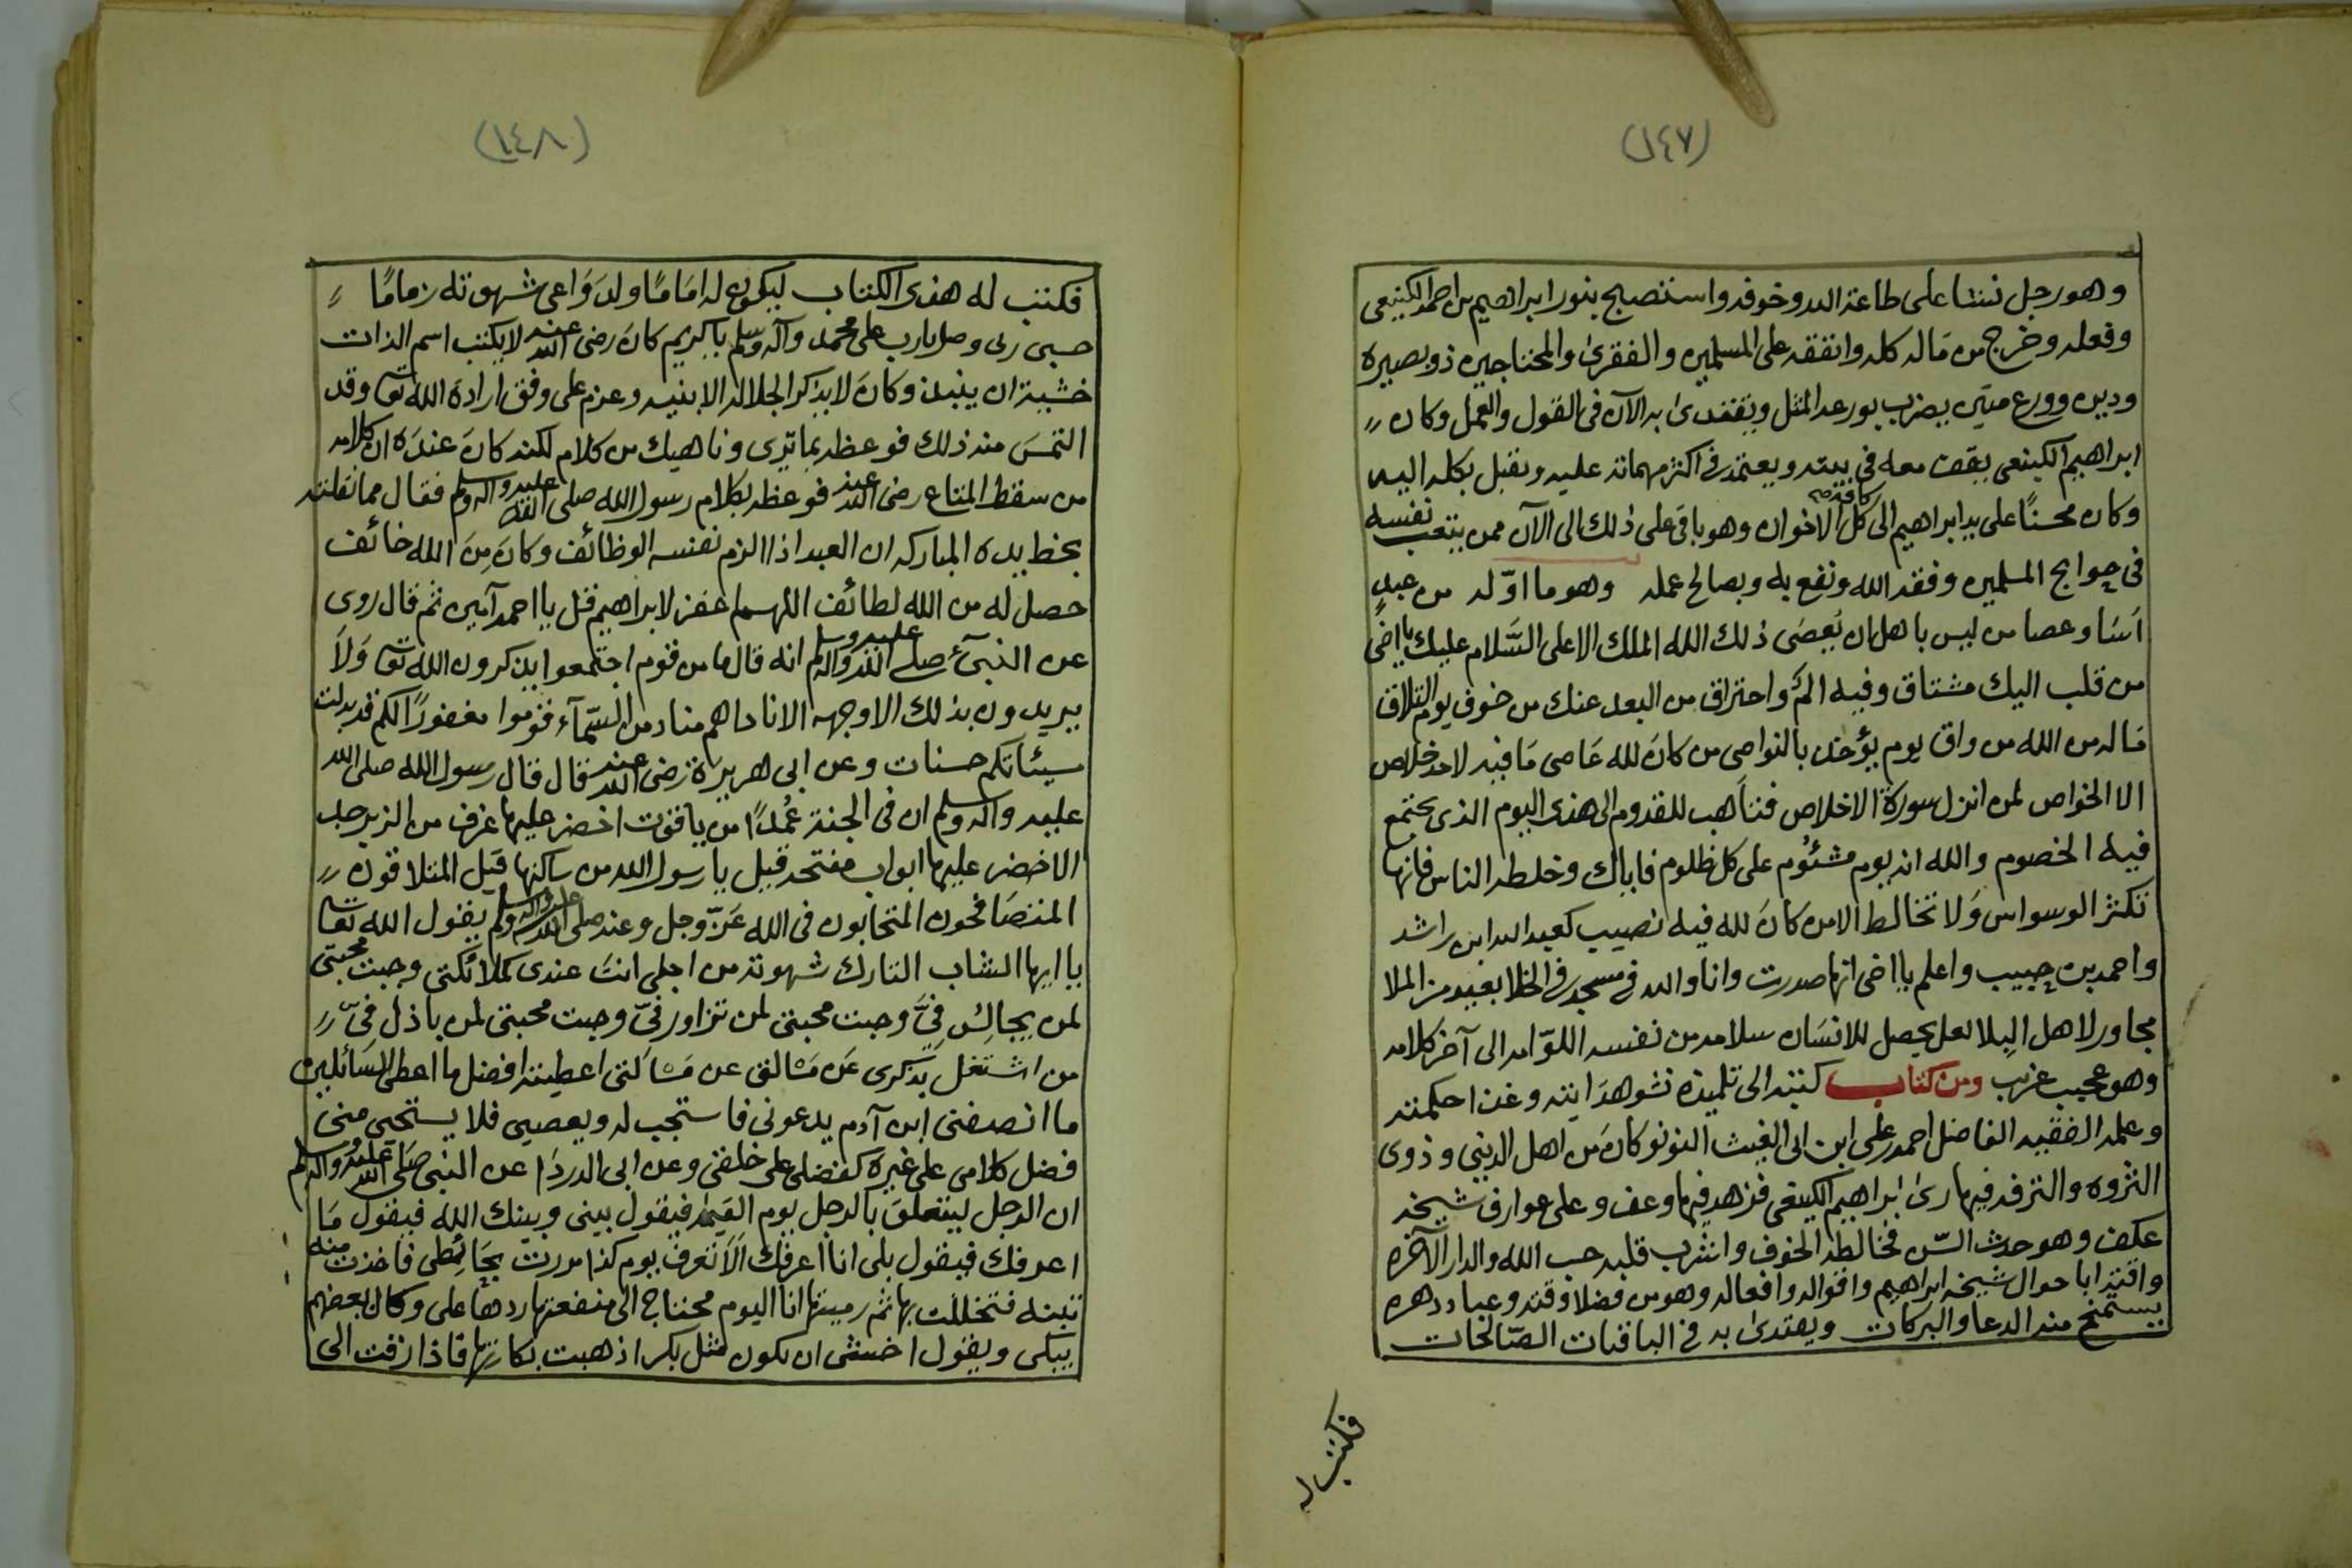 (١٤٧)
وهو رجل نشا على طاعة الله وخوفه واستصبح بنور ابراهيم بن احمد الكينعي
وفعله وخرج من مَاله كله وانفقه على المسلمين والفقرىٰ والمحتاجين ذو بصيره
ودين وورع متين يضرب بورعه المثل ويقتدىٰ به الآن في القول والعمل وكان
ابراهيم الكينعي يقف معه في بيته ويعتمد في اكثر مهماته عليه ويقبل بكله اليه
وكان محسنًا على يد ابراهيم الى كل كافة الاخوان وهو باقي على ذلك الى الآن ممن يتعب نفسه
في حوايج المسلمين وفقه الله ونفع به وبصالح عمله وهو ما اوّله من عبدٍ
اسَا وعصا من ليس باهل ان يُعصَى ذلك الله الملك الاعلى السَّلام عليك يا اخي
من قلب اليك مشتاق وفيه المٌ واحتراق من البعد عنك من خوف يوم التلاق
مَاله من الله من واق يوم يؤخذ بالنواصي من كانَ لله عَاصي مَا فيه لاحد خلاص
الا الخواص لمن انزل سورة الاخلاص فتاهب للقدوم الى هذى اليوم الذي يجتمع
فيه الخصوم والله انه يوم مشئوم على كل ظلوم فاياك وخلطه الناس فانها
تكثر الوسواس وَلا تخالط الا من كانَ لله فيه نصيب كعبد الله ابن راشد
واحمد بن حبيب واعلم يا اخي انها صدرت وانا والله في مسجد في الخلا بعيد من الملا
مجاور لاهل البلا لعل يحصل للانسَان سلامه من نفسه اللوّامه الى آخر كلامه
وهو عجيب غريب ومن كتاب كتبه الى تلميذه نشو هدَايته وغذا حكمته
وعلمه الفقيه الفاضل احمد علي ابن ابي الغيث النونو كان من اهل الديني وذوي
الثروه والترفه فيها رىٰ ابراهيم الكينعي فزهد فيها وعف وعلى عوارف شيخه
عكف وهو حدث السّن فخالطه الخوف وانشرب قلبه حب الله والدار الآخره
واقتدا باحوال شيخه ابراهيم واقواله وافعاله وهو من فضلا وقته وعباد دهره
يستمنح منه الدعا والبركات ويقتدىٰ به في الباقيات الصّالحات
فكتب له
(١٤٨)
فكتب له هذى الكتاب ليكون له امَامًا ولدَوَاعي شهوته زمامًا
حسبي ربي وصل يا رب على محمد وآله وسلم يا كريم كانَ رضي الله عنه لا يكتب اسم الذات
خشية ان ينبذ وكانَ لا يذكر الجلاله الا بنيه وعزم على وفق ارادة الله تعا وقد
التمسَ منه ذلك فوعظه بما ترى وناهيك من كلام لكنه كانَ عندَه ان كلامه
من سقط المتاع رضي الله عنه فوعظه بكلام رسول الله صلى الله عليه وآله وسلم فقال مما نقلته
بخط يده المباركه ان العبد اذا الزم نفسه الوظائف وكانَ مِنَ الله خائف
حصل له من الله لطائف اللهم اغفر لابراهيم قل يا احمد آمين ثم قال روي
عن النبيّ صلى الله عليه وآله وسلم انه قال ما من قوم اجتمعوا يذكرون الله تعا وَلَا
يريدون بذلك الا وجهه الا ناداهم مناد من السّمآء قوموا مغفورًا لكم قد بدلت
سيئاتكم حسنات وعن ابي هريرة رضي الله عنه قال قال رسول الله صلى الله
عليه وآله وسلم ان في الجنة عُمُدًا من ياقوت اخضر عليها غرف من الزبرجد
الاخضر عليها ابواب مفتحه قيل يا رسول الله من ساكنها قيل المتلاقون
المتصَافحون المتحابون في الله عَزّ وجل وعنه صلى الله عليه وآله وسلم يقول الله تعا
يا ايها الشاب التارك شهوته من اجلي انتَ عندي كملائكتي وجبت محبتي
لمن يجالِسُ فيَّ وجبت محبتي لمن تزاور فيّ وجبت محبتي لمن باذل فيّ
من اشتغل بذكرى عَن مسَالتي عن مسَالتي اعطيته افضل ما اعطي السَائلين
ما انصفني ابن آدم يدعوني فاستجب له ويعصيني فلا يستحيي مني
فضل كلامي على غيره كفضلي على خلقي وعن ابي الدردا عن النبي صَلى الله عليه وآله وسلم
ان الرجل ليتعلقَ بالرجل يوم القيمه فيقول بيني وبينك الله فيقول مَا
اعرفك فيقول بلى انا اعرفك الَا تعرف يوم كذا مررت بحَائِطي فاخذت منه
تبنه فتخللت بها ثم رميتها انا اليوم محتاج الى منفعتها ردها علي وكان بعضهم
يبكى ويقول اخشى ان نكون مثل بكرا ذهبت بكارتها فاذا زفت الى